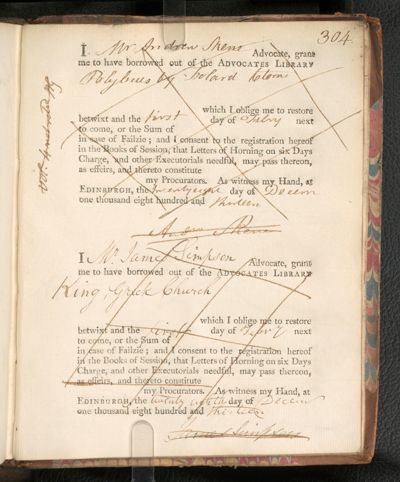 304.
I Mr Andrew Skene Advocate, grant
me to have borrowed out of the ADVOCATES LIBRARY
Polybius by Folard
which I oblige me to restore
betwixt and the first day of Febry next
to come, or the Sum of
in case of Failzie; and I consent to the registration hereof
in the Books of Session, that Letters of Horning on six Days
Charge, and other Executorials needful, may pass thereon,
as effeirs, and thereto constitute
my Procurators. As witness my Hand, at
EDINBURGH, the twentyeight day of Decem
one thousand eight hundred and thirteen
Andw Skene
I Mr James Simpson Advocate, grant
me to have borrowed out of the ADVOCATES LIBRARY
King, Greek Church
which I oblige me to restore
betwixt and the day of Febry next
to come, or the Sum of
in case of Failzie; and I consent to the registration hereof
in the Books of Session, that Letters of Horning on six Days
Charge, and other Executorials needful, may pass thereon,
as effeirs, and thereto constitute
my Procurators. As witness my Hand, at
EDINBURGH, the twenty day of Decem
one thousand eight hundred and thirteen
James Simpson